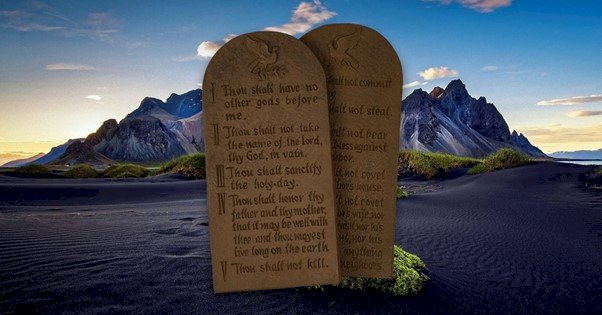 I Thou shall have no
other gods before
me.
II Thou shall not take
the name of the lord,
thy God, in vain.
III Thou shall sanctify
the holy-day.
IV Thou shall honor thy
father and thy mother,
that it may be well with
thee and thou mayest
live long on the earth
V Thou shall not kill.
shall not commit
shall not steal.
shall not bear
against
not covet
house.
not covet
wife, nor
nor his
nor his
anything
neighbors